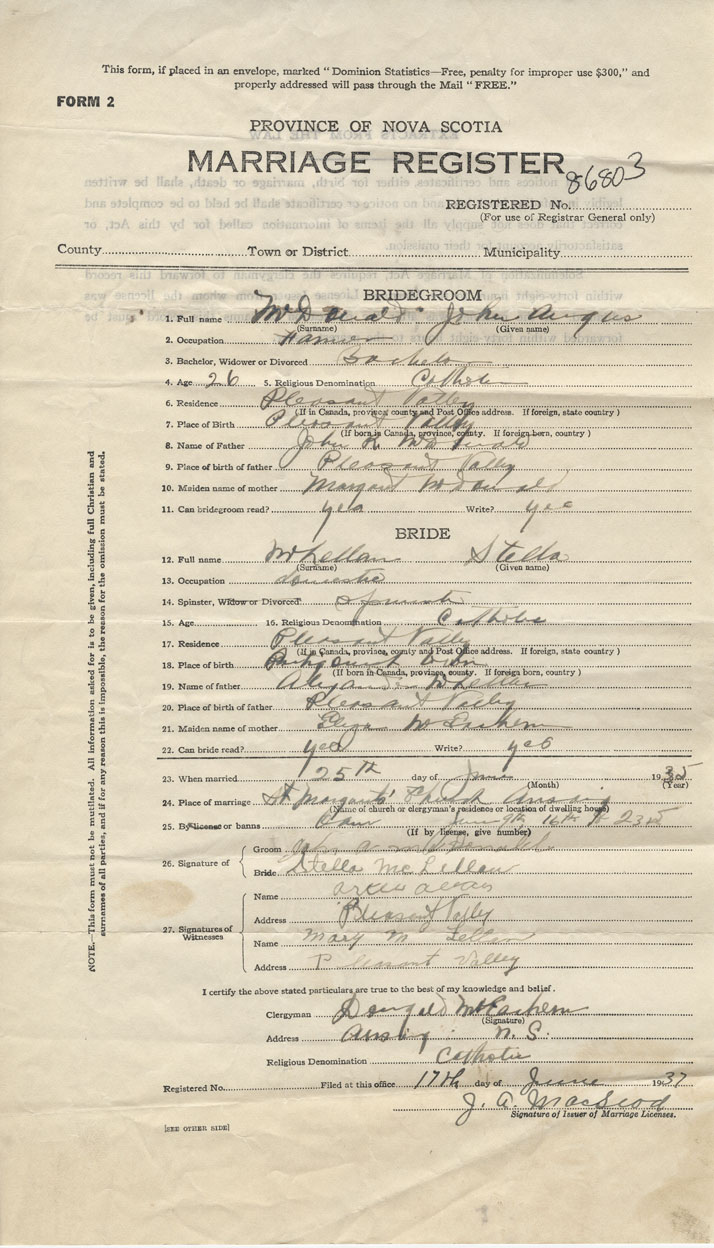 This form, if placed in an envelope, marked “Dominion Statistics—Free, penalty for improper use $300,” and
properly addressed will pass through the Mail “FREE.”
FORM 2
PROVINCE OF NOVA SCOTIA
MARRIAGE REGISTER
86803
REGISTERED No.
(For use of Registrar General only)
County Town or District Municipality
BRIDEGROOM
1. Full name McDonald John Angus
(Surname) (Given name)
2. Occupation Farmer
3. Bachelor, Widower or Divorced Bachelor
4. Age 26 5. Religious Denomination Catholic
6. Residence Pleasant Valley
(If in Canada, province, county and Post Office address. If foreign, state country)
7. Place of Birth Pleasant Valley
(If born in Canada, province, county. If foreign born, country)
8. Name of Father John McDonald
9. Place of birth of father Pleasant Valley
10. Maiden name of mother Margaret McDonald
11. Can bridegroom read? yes Write? yes
BRIDE
12. Full name McLellan Stella
(Surname) (Given name)
13. Occupation domestic
14. Spinster, Widow or Divorced Spinster
15. Age 16. Religious Denomination Catholic
17. Residence Pleasant Valley
(If in Canada, province, county and Post Office address. If foreign, state country)
18. Place of birth
(If born in Canada, province, county. If foreign born, country)
19. Name of father Alexander McLellan
20. Place of birth of father Pleasant Valley
21. Maiden name of mother Eliza McEachern
22. Can bride read? yes Write? yes
23. When married 25th day of June 1935
(Month) (Year)
24. Place of marriage St Margaret's Church
(Name of church or clergyman's residence or location of dwelling house)
25. By license or banns June 9th 16th & 23rd
(If by license, give number)
26. Signature of
Groom John A. McDonald
Bride Stella McLellan
27. Signatures of Witnesses
Name
Address Pleasant Valley
Name Mary McLellan
Address Pleasant Valley
I certify the above stated particulars are true to the best of my knowledge and belief.
Clergyman Dougald McEachern
(Signature)
Address N. S.
Religious Denomination Catholic
Registered No. Filed at this office 17th day of June 1937
J. A. MacLeod
Signature of Issuer of Marriage Licenses.
[SEE OTHER SIDE]
NOTE.—This form must not be mutilated. All information asked for is to be given, including full Christian and
surnames of all parties, and if for any reason this is impossible, the reason for the omission must be stated.